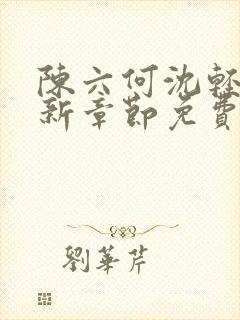 陳六何沈輕
新章節免費
劉華芹